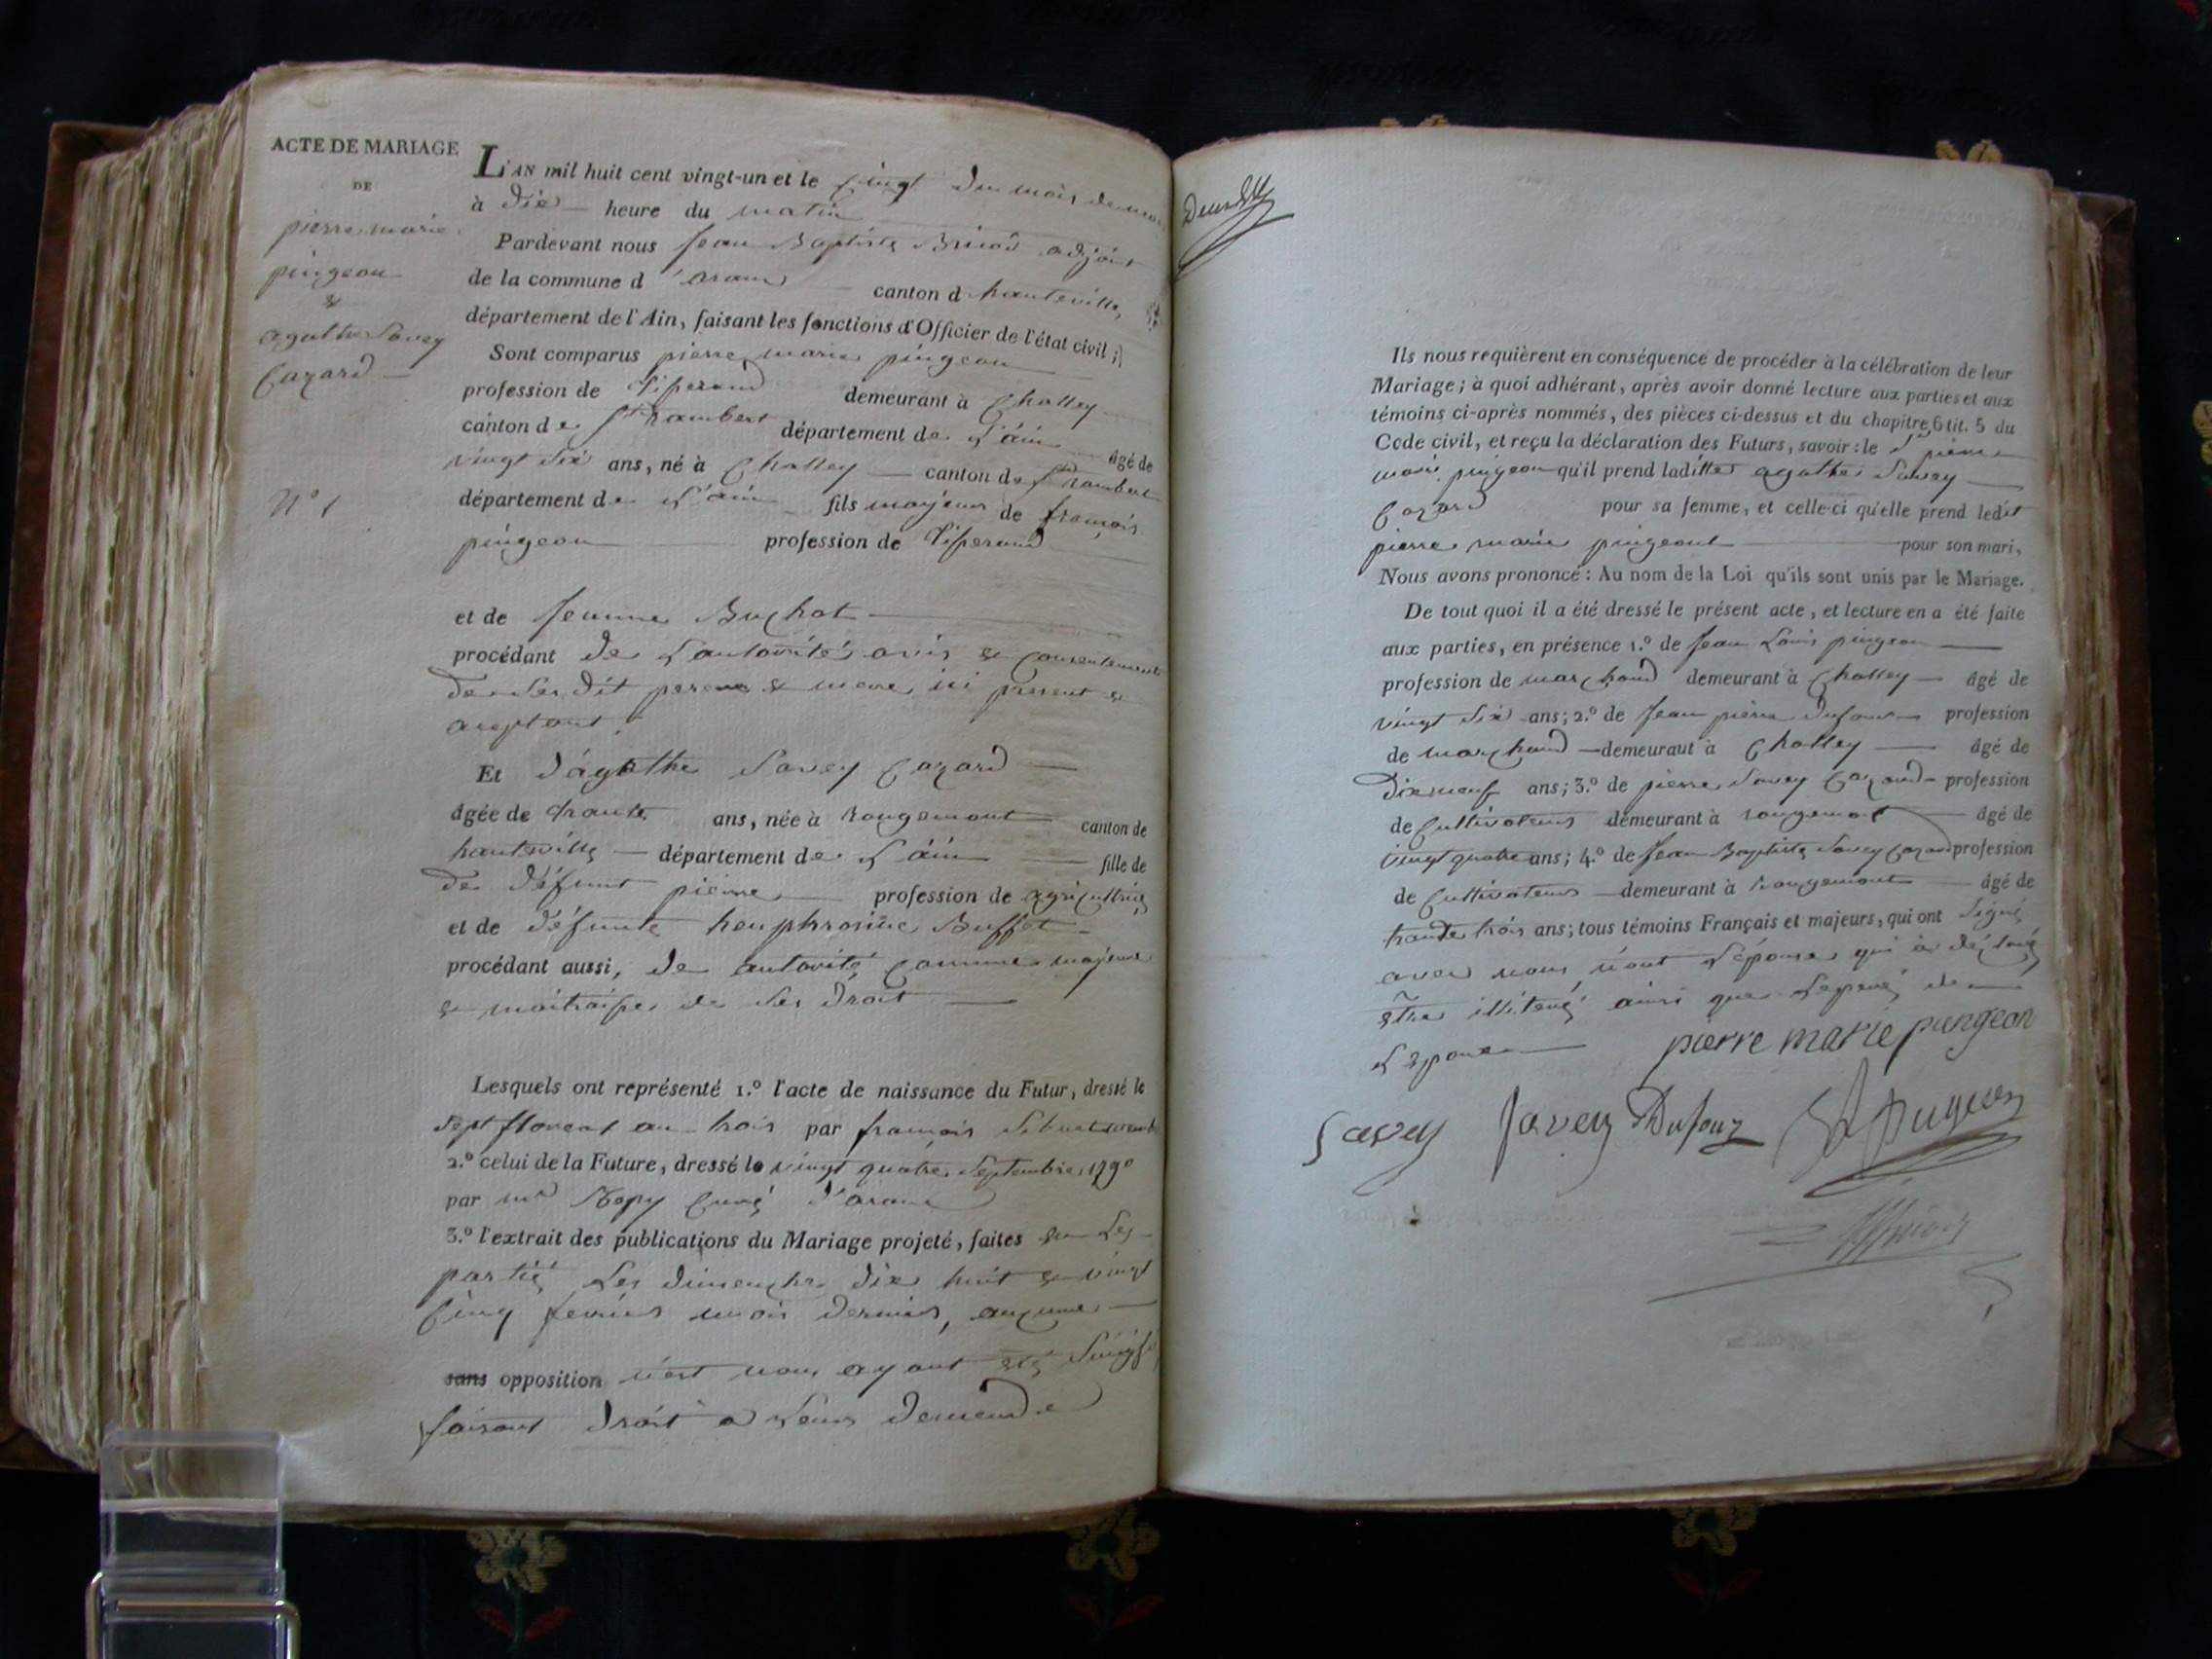 ACTE DE MARIAGE
DE
pierre marie
pingeon
&
agathe Savey
Cazard
N° 1
L'AN mil huit cent vingt-un et le cinq du mois de mars
à dix heure du matin
Pardevant nous Jean Baptiste adjoint
de la commune d'aranc canton d hauteville,
département de l'Ain, faisant les fonctions d'Officier de l'état civil;
Sont comparus pierre marie pingeon
profession de Tisserand demeurant à Challey
canton de St rambert département de L'ain âgé de
vingt six ans, né à Challey canton de St rambert
département de L'ain fils majeur de françois
pingeon profession de Tisserand
et de Jeanne Buchot
procédant de L'autorité avis & consentement
de Ses dit pere & mere ici present &
aceptant.
Et d'agathe Savey Cazard
âgée de trante ans, née à rougemont canton de
hauteville département de L'ain fille de
de défunt pierre profession de
et de défunte heuphrosine Buffet
procédant aussi, de autorité comme majeure
& maitraisse de Ses Droit
Lesquels ont représenté 1.º l'acte de naissance du Futur, dressé le
Sept floreal an trois par françois
2.º celui de la Future, dressé le vingt quatre Septembre 1790
par mr Curé d'aranc
3.º l'extrait des publications du Mariage projeté, faites
partie Les dimanche dix huit & vingt
Cinq fevrier mois dernier, aucune
sans opposition n'est nous ayant été Signifié
faisant droit a Leur demende
Ils nous requièrent en conséquence de procéder à la célébration de leur
Mariage; à quoi adhérant, après avoir donné lecture aux parties et aux
témoins ci-après nommés, des pièces ci-dessus et du chapitre 6 tit. 5 du
Code civil, et reçu la déclaration des Futurs, savoir: le Sr pierre
marie pingeon qu'il prend laditte agathe Savey
Cazard pour sa femme, et celle-ci qu'elle prend ledit
pierre marie pingeont pour son mari,
Nous avons prononcé: Au nom de la Loi qu'ils sont unis par le Mariage.
De tout quoi il a été dressé le présent acte, et lecture en a été faite
aux parties, en présence 1.º de Jean Louis pingeon
profession de marchand demeurant à Challey âgé de
vingt six ans; 2.º de Jean pierre Dufour profession
de marchand demeurant à Challey âgé de
Dixneuf ans; 3.º de pierre Savey Cazard profession
de Cultivateur demeurant à rougemont âgé de
vingt quatre ans; 4.º de Jean Baptiste Savey Cazard profession
de Cultivateur demeurant à rougemont âgé de
trante trois ans; tous témoins Français et majeurs, qui ont Signé
avec nous n'ont L'épouse qui a déclaré
être illiteré ainsi que Le pere de
L'epoux
pierre marie pungeon
Savey Savey Dufour